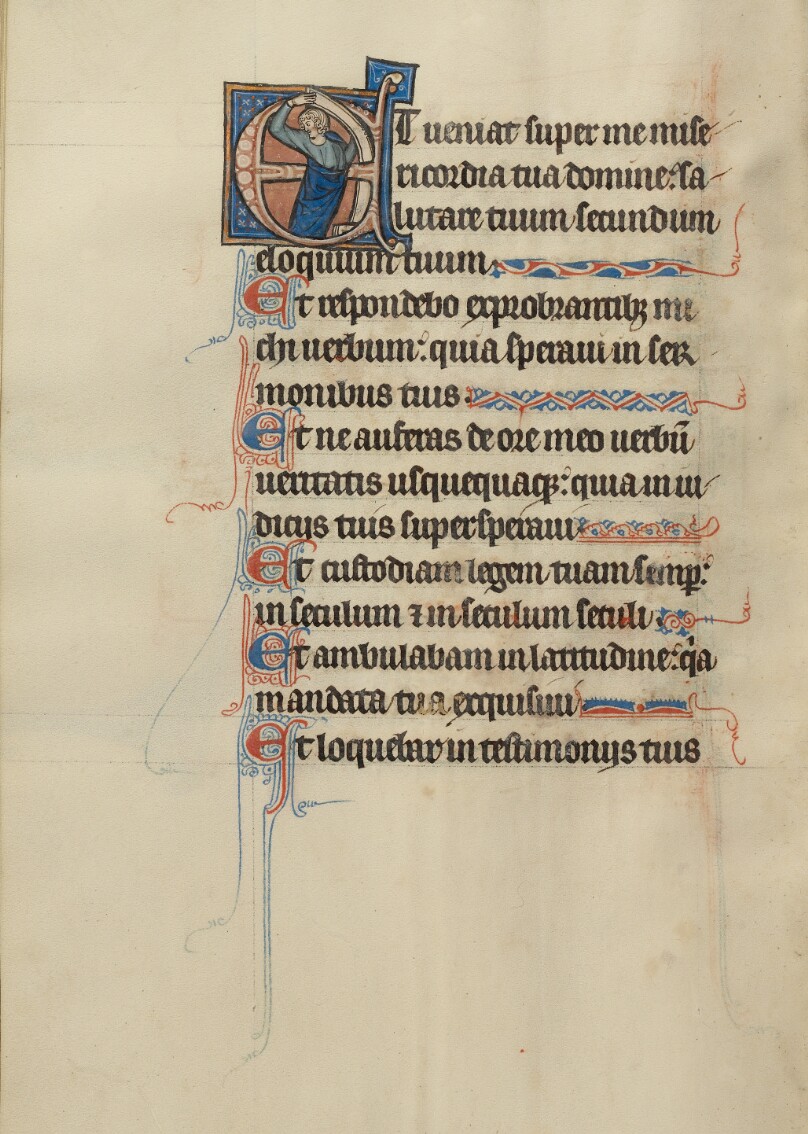 ET ueniat super me mise
ricordia tua domine: sa
lutare tuum secundum
eloquium tuum.
Et respondebo exprobrantibꝫ mi
chi uerbum: quia speraui in ser
monibus tuis.
Et ne auferas de ore meo uerbū
ueritatis usquequaqꝫ: quia in iu
dicijs tuis supersperaui
Et custodiam legem tuam semꝑ:
in seculum ⁊ in seculum seculi.
Et ambulabam in latitudine: qͥa
mandata tua exquisiui
Et loquebar in testimonijs tuis